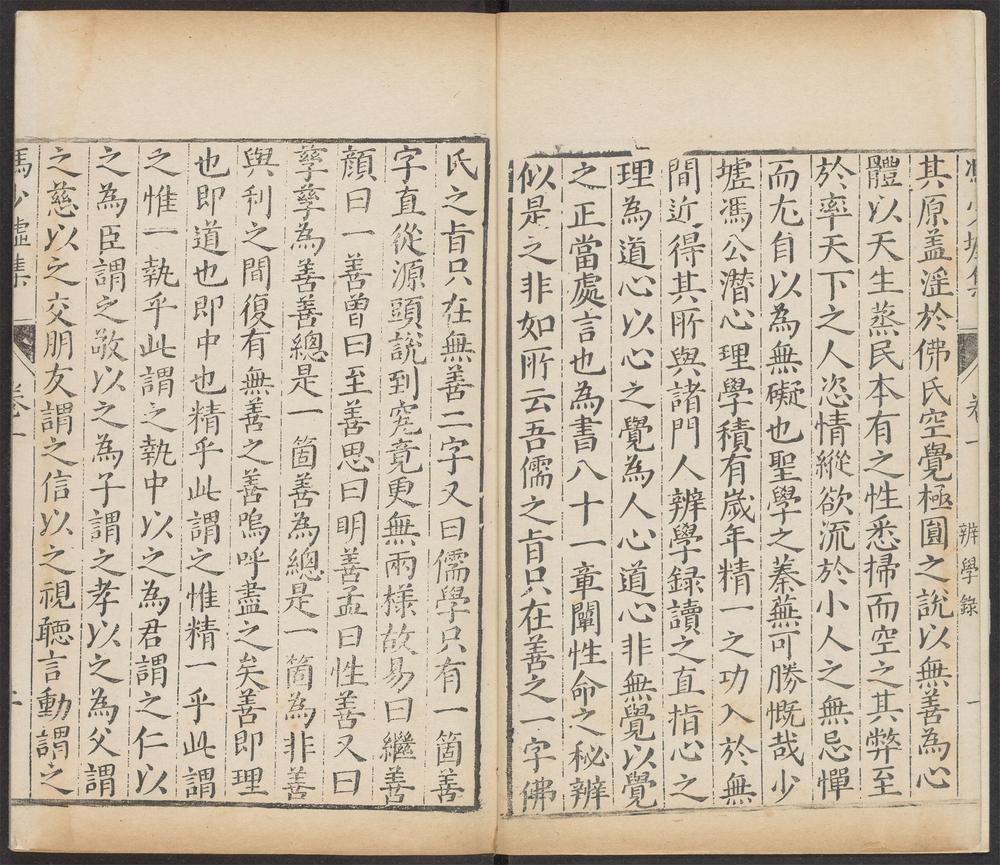 馮少墟集 卷一 辨學錄 一
其原盖滛於佛氏空覺極圓之說以無善為心
體以天生蒸民本有之性悉掃而空之其弊至
於率天下之人恣情縱欲流於小人之無忌憚
而尢自以為無礙也聖學之蓁蕪可勝慨哉少
墟馮公潜心理學積有歲年精一之功入於無
間近得其所與諸門人辨學録讀之直指心之
理為道心以心之覺為人心道心非無覺以覺
之正當處言也為書八十一章闡性命之秘辨
似是之非如所云吾儒之旨只在善之一字佛
氏之旨只在無善二字又曰儒學只有一箇善
字直從源頭說到究竟更無兩様故易曰繼善
顏曰一善曾曰至善思曰明善孟曰性善又曰
孳孳為善善總是一箇善為總是一箇為非善
與利之間復有無善之善嗚呼盡之矣善即理
也即道也即中也精乎此謂之惟精一乎此謂
之惟一執乎此謂之執中以之為君謂之仁以
之為臣謂之敬以之為子謂之孝以之為父謂
之慈以之交朋友謂之信以之視聽言動謂之
馮少墟集 卷一